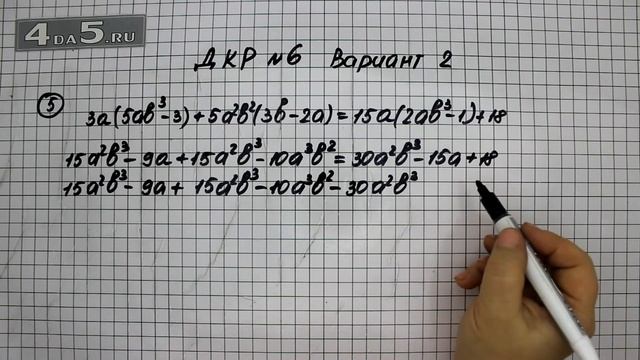 4DA5.RU
ДКР №6 Вариант 2
⑤ 3a(5ab³-3)+5a²b²(3b-2a)=15a(2ab³-1)+18
15a²b³-9a+15a²b³-10a³b²=30a²b³-15a+18
15a²b³-9a+15a²b³-10a³b²-30a²b³